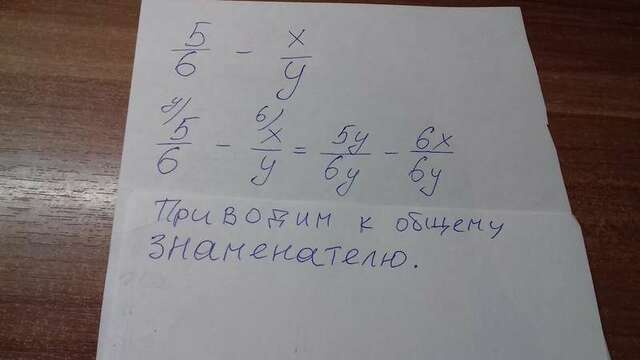 5/6 - x/y
y) 5/6 - 6) x/y = 5y/6y - 6x/6y
Приводим к общему
знаменателю.